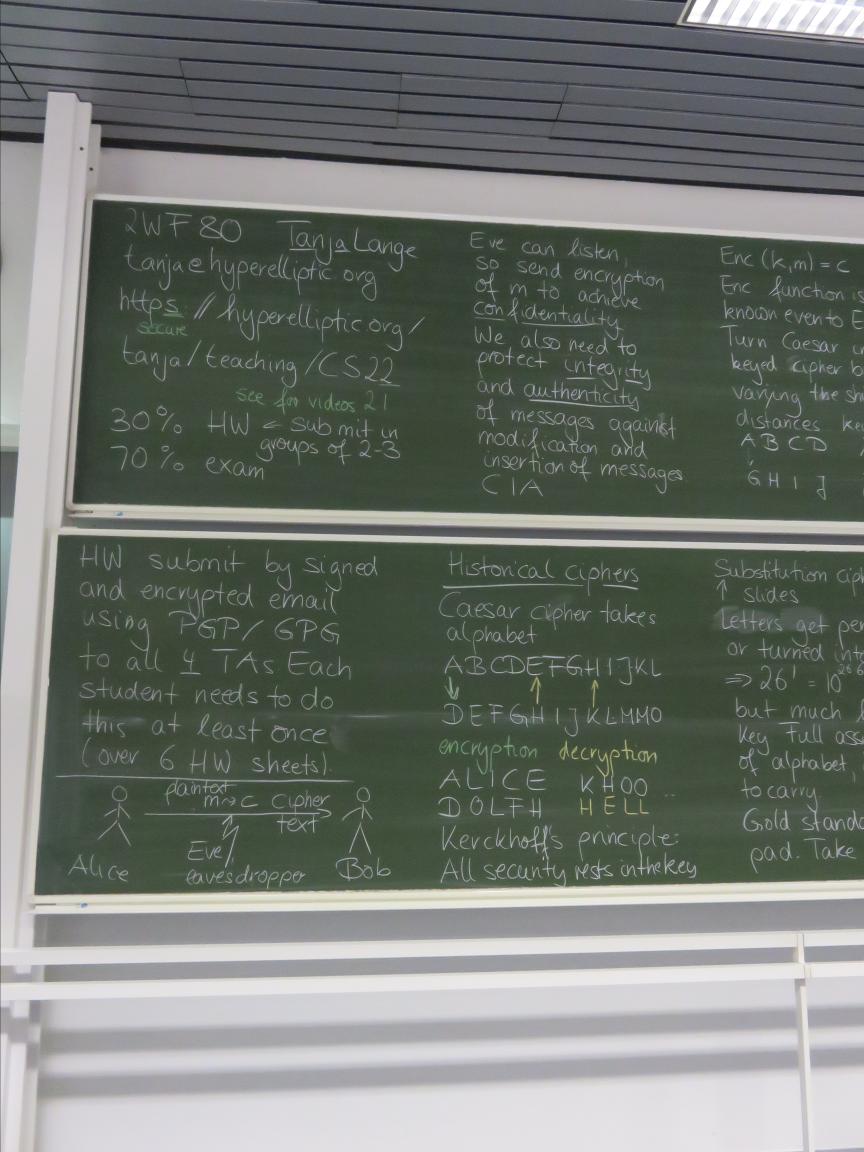 2WF80 Tanja Lange
tanja@hyperelliptic.org
https://hyperelliptic.org/
secure
tanja/teaching/CS22
see for videos 21
30% HW ← submit in
groups of 2-3
70% exam
Eve can listen,
so send encryption
of m to achieve
confidentiality
We also need to
protect integrity
and authenticity
of messages against
modification and
insertion of messages
CIA
Enc(k,m) = c
Enc function is
known even to E
Turn Caesar in
keyed cipher b
varying the sh
distances ke
A B C D
↓
G H I J
HW submit by signed
and encrypted email
using PGP/GPG
to all 4 TAs Each
student needs to do
this at least once
(over 6 HW sheets).
plaintext
m→c cipher
text
Eve
eavesdropper
Alice
Bob
Historical ciphers
Caesar cipher takes
alphabet
ABCDEFGHIJKL
↓ ↑ ↑
DEFGHIJKLMMO
encryption decryption
ALICE KHOO ..
DOLFH HELL
Kerckhoff's principle:
All security rests in the key
Substitution ciph
↑ slides
Letters get per
or turned int
⇒ 26! = 10^26.6
but much
key Full ass
of alphabet,
to carry.
Gold standa
pad. Take